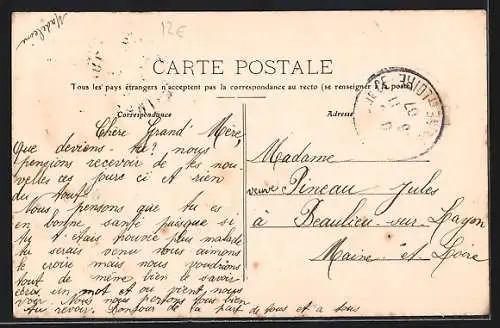 Madeleine
12€
CARTE POSTALE
Tous les pays étrangers n'acceptent pas la correspondance au recto (se renseigner à la poste)
Correspondance
Adresse
Chère Grand' Mère,
Que deviens-tu? nous
pensions recevoir de tes nou-
velles ces jours ci et rien
du tout.
Nous pensons que tu es
en bonne santé puisque si
tu t'étais trouvée plus malade
tu serais venu nous aimons
le croire mais nous voudrions
tout de même bien le savoir
écris un mot et ou vient nous
voir. Nous nous portons tous bien
Au revoir. Bonjour de la part de tous et a tous
Madame
veuve Pineau Jules
à Beaulieu-sur-Layon
Maine-et-Loire